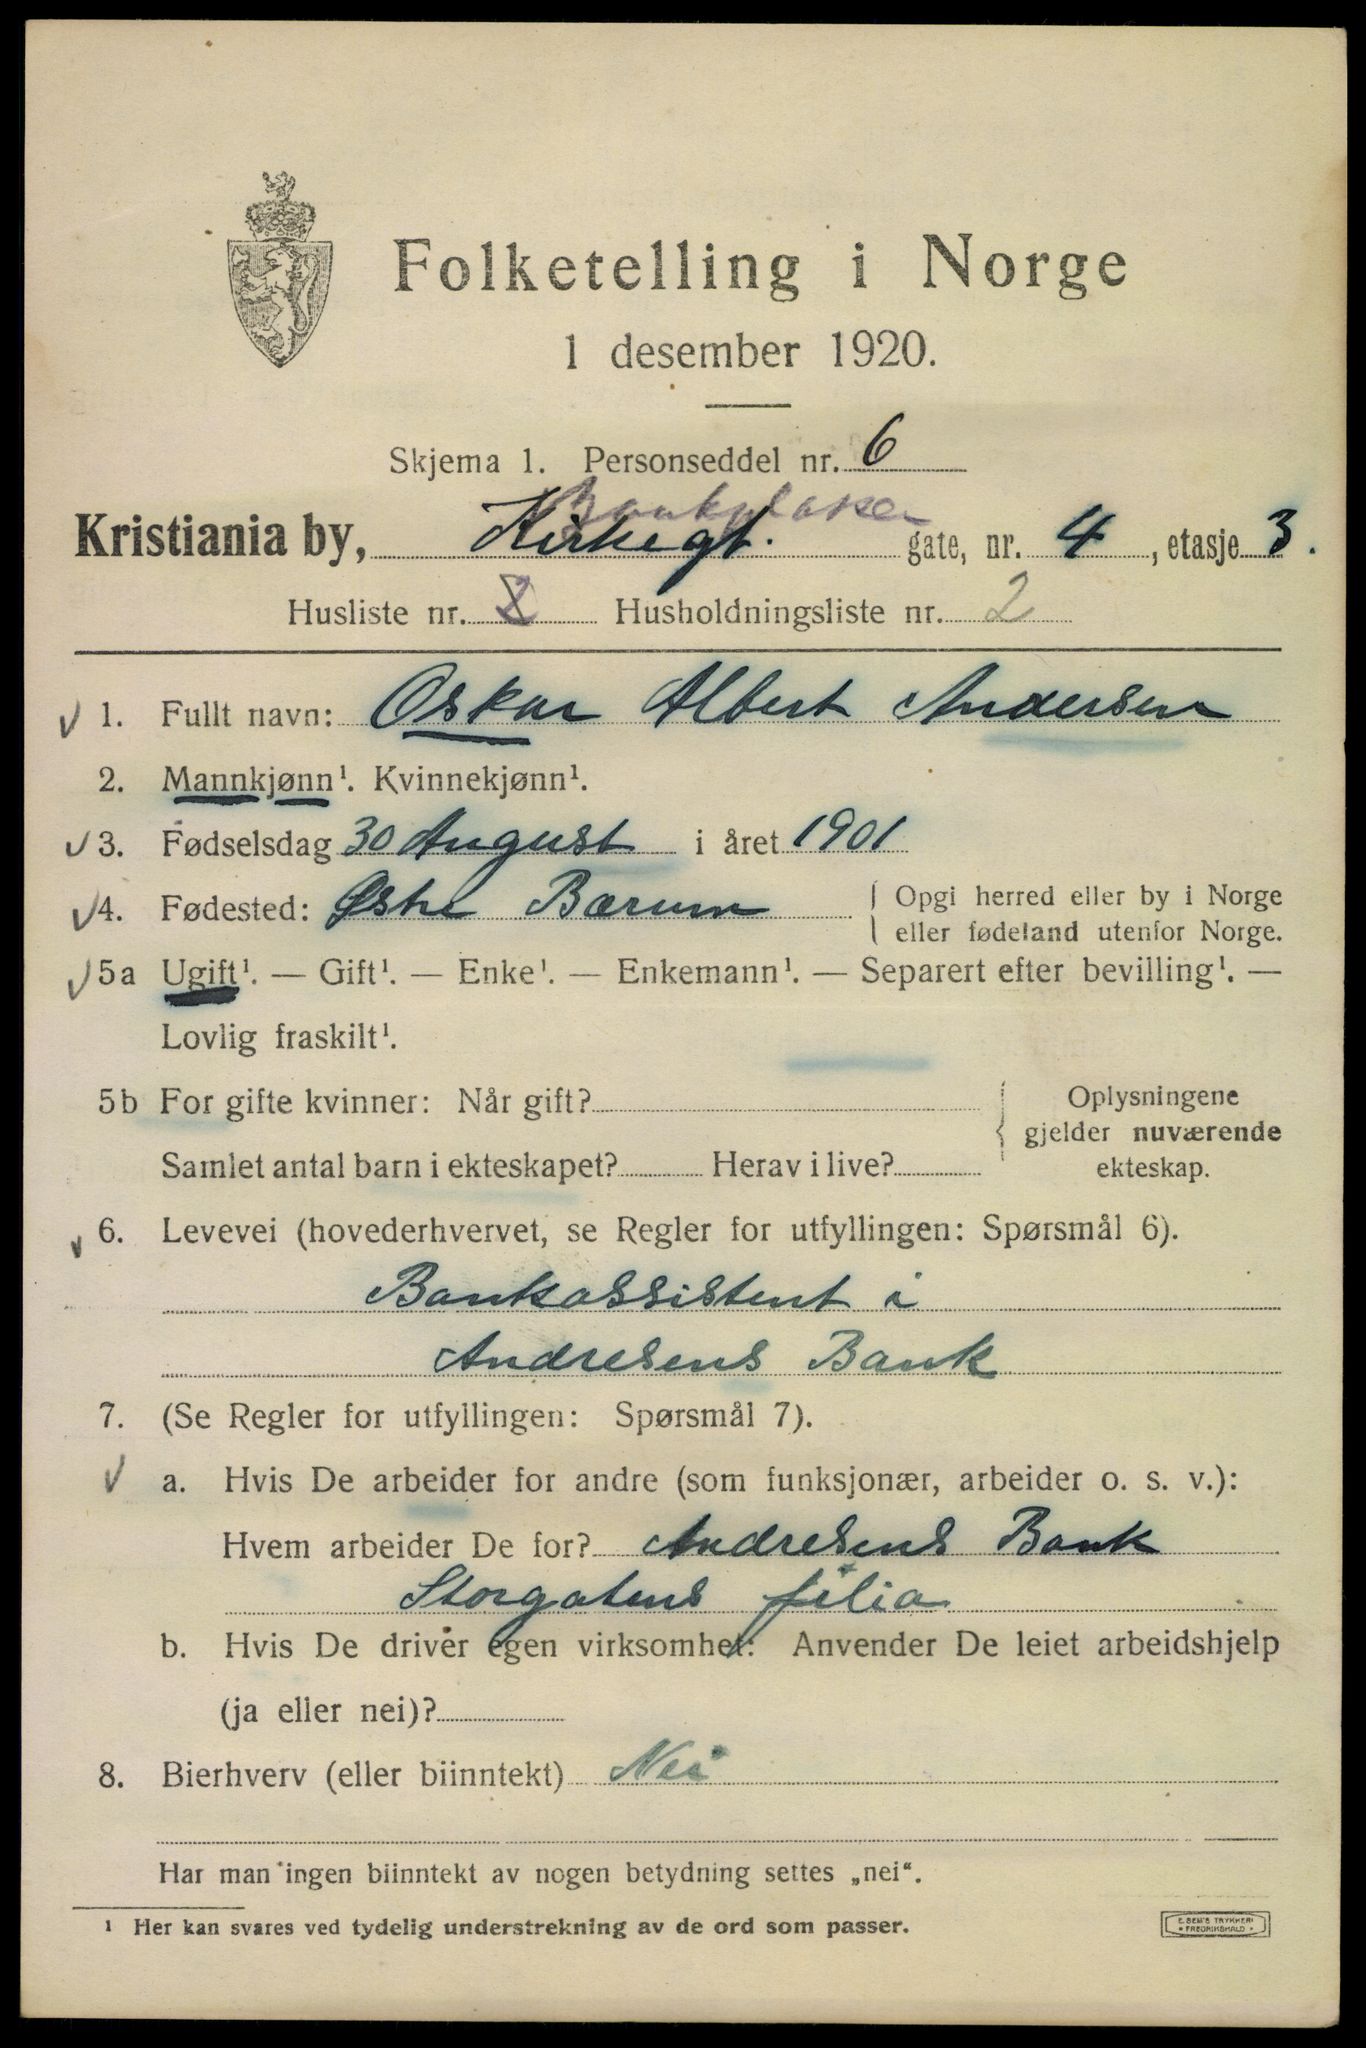 Folketelling i Norge
1 desember 1920.
Skjema 1. Personseddel nr. 6
Bankplassen
Kristiania by, Kirkegt. gate, nr. 4, etasje 3.
Husliste nr. 2 Husholdningsliste nr. 2
1. Fullt navn: Oskar Albert Andersen
2. Mannkjønn¹. Kvinnekjønn¹.
3. Fødselsdag 30 August i året 1901
4. Fødested: Østre Bærum { Opgi herred eller by i Norge
eller fødeland utenfor Norge.
5a Ugift¹. — Gift¹. — Enke¹. — Enkemann¹. — Separert efter bevilling¹. —
Lovlig fraskilt¹.
5b For gifte kvinner: Når gift?
Samlet antal barn i ekteskapet? Herav i live?
Oplysningene
gjelder nuværende
ekteskap.
6. Levevei (hovederhvervet, se Regler for utfyllingen: Spørsmål 6).
Bankassistent i
Andresens Bank
7. (Se Regler for utfyllingen: Spørsmål 7).
a. Hvis De arbeider for andre (som funksjonær, arbeider o. s. v.):
Hvem arbeider De for? Andresens Bank
Storgatens filia
b. Hvis De driver egen virksomhet: Anvender De leiet arbeidshjelp
(ja eller nei)?
8. Bierhverv (eller biinntekt) Nei
Har man ingen biinntekt av nogen betydning settes „nei“.
¹ Her kan svares ved tydelig understrekning av de ord som passer.
E. SEM'S TRYKKERI
FREDRIKSHALD